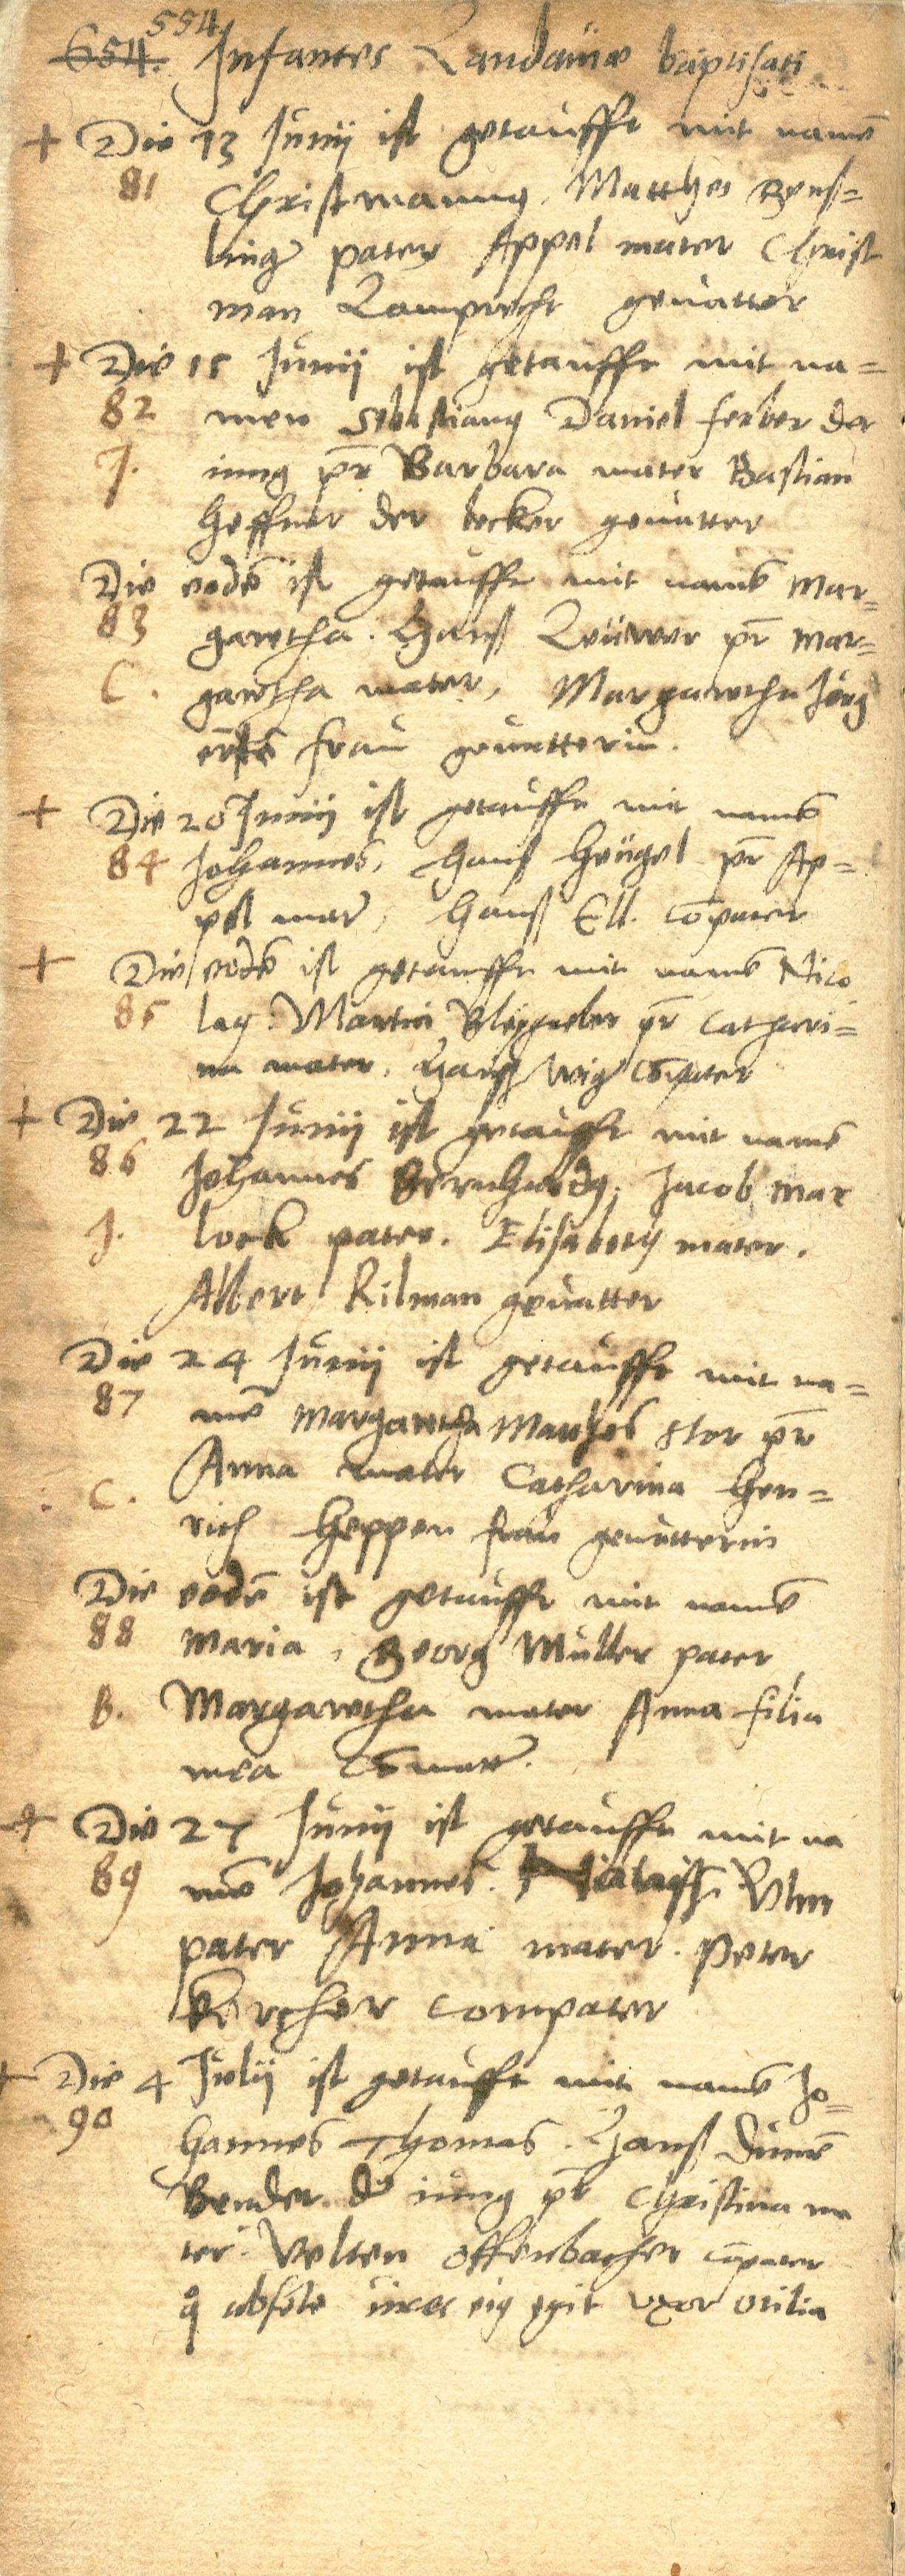 554.
654. Infantes Landaviae baptisati
+ Die 13 Junij ist getaufft mit namē
81 Christmannus. Matthes
ling pater Appel mater Christ
man Lamprecht gevatter
+ Die 15 Junij ist getaufft mit na=
82 men Sebastianus Daniel ferber der
J. iung pr̄ Barbara mater Bastian
Heffner der becker gevatter
Die eodē ist getaufft mit namē Mar=
83 garetha. Hanß pr̄ Mar=
C. garetha mater, Margaretha Jörg
frau gevatterin.
+ Die 20 Junij ist getaufft mit namē
84 Johannes, Hans Heügel pr̄ Ap=
pel mater, Hanß Ell. cōpater
+ Die eodē ist getaufft mit namē Nico
85 laus. Martin pr̄ Cathari=
na mater. Hanß Wig cōpater
+ Die 22 Junij ist getaufft mit namē
86 Johannes Bernhardus. Jacob Mar
J. lock pater. Elisabeth mater.
Albert Rilman gevatter
Die 24 Junij ist getaufft mit na=
87 mē Margaretha Mathes Stor pr̄
C. Anna mater Catharina Hen=
rich Heppen frau gevatterin
Die eodē ist getaufft mit namē
88 Maria, Georg Müller pater
B. Margaretha mater Anna filia
mea cōmater.
+ Die 27 Junij ist getaufft mit na
89 mē Johannes. Ulm
pater Anna mater. Peter
Kercher compater
+ Die 4 Julij ist getaufft mit namē Jo=
90 hannes Thomas. Hanß
Bender d' iung pr̄ Christina ma
ter. Velten Offenbacher cōpater
q absēte vices eius egit uxor Otilia